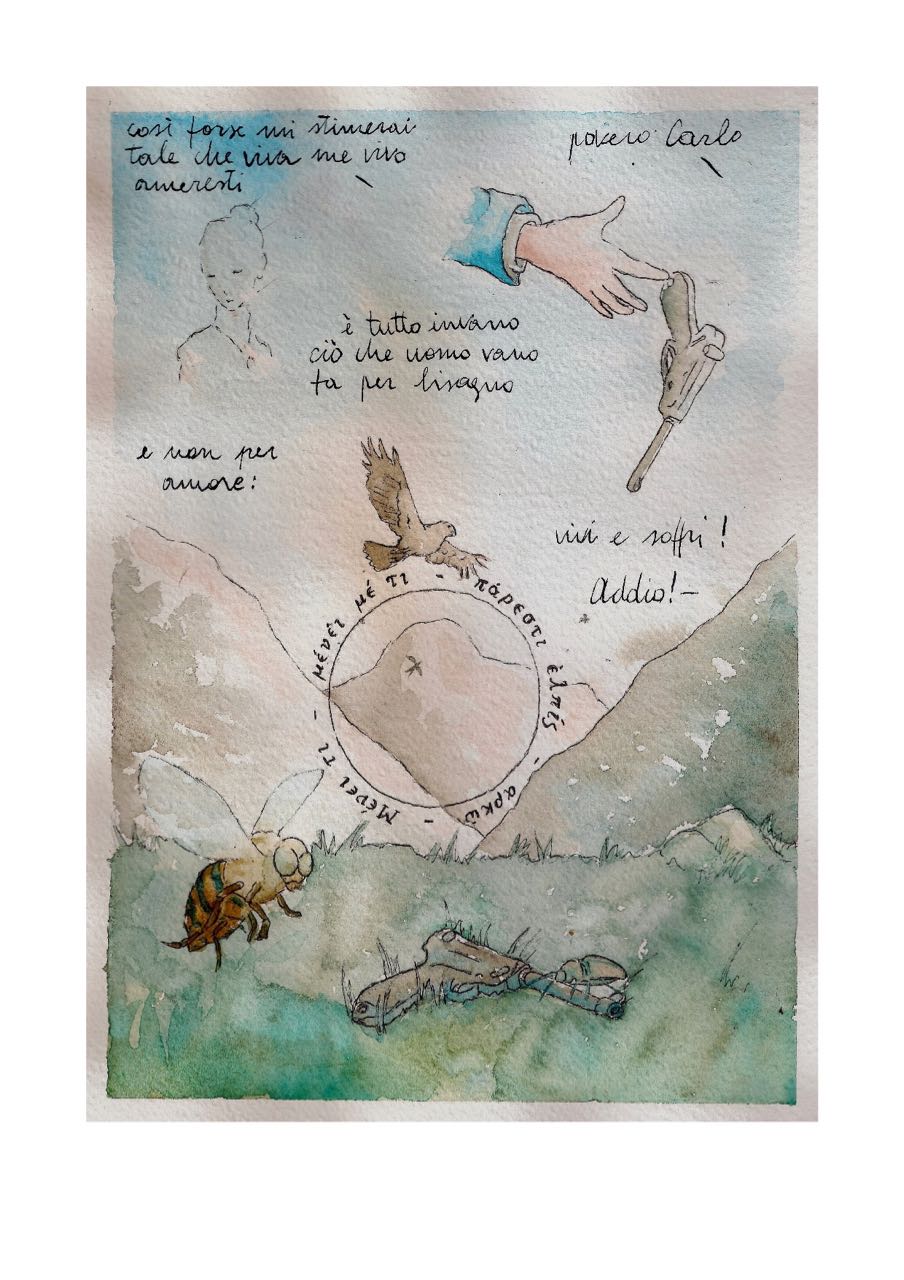 così forse mi stimerai
tale che viva me vivo
ameresti
povero Carlo
è tutto invano
ciò che uomo vano
fa per bisogno
e non per
amore:
vivi e soffri!
Addio!-
Μένει τι - μένει μέ τι - πάρεστι ἐλπίς - αρκῶ -